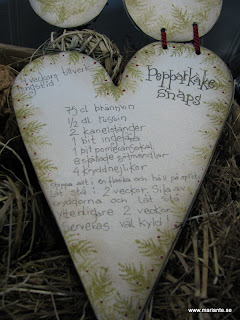 4 veckors tillverk
ningstid
Pepparkaks
snaps
75 cl brännvin
½ dl russin
2 kanelstänger
1 bit ingefära
1 bit pomeransskal
8 skållade sötmandlar
4 kryddnejlikor
Stoppa allt i en flaska och häll på sprit
Låt stå i 2 veckor. Sila av
kryddorna och låt stå
ytterligare 2 veckor.
Serveras väl kyld!
www.mariante.se